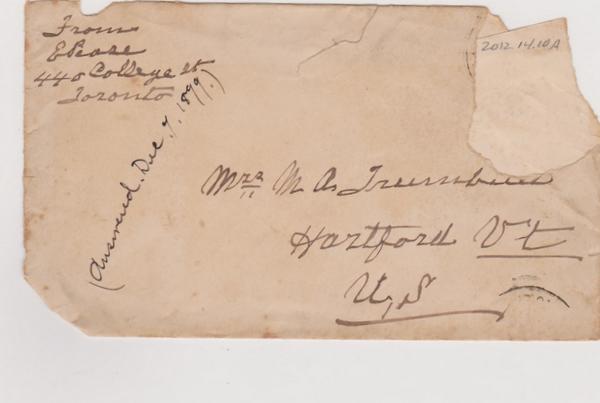 From
E Pease
440 College st
Toronto
(Answered. Dec 7. 1899.)
2012.14.10A
Mrs M A Trumbull
Hartford Vt
U,S